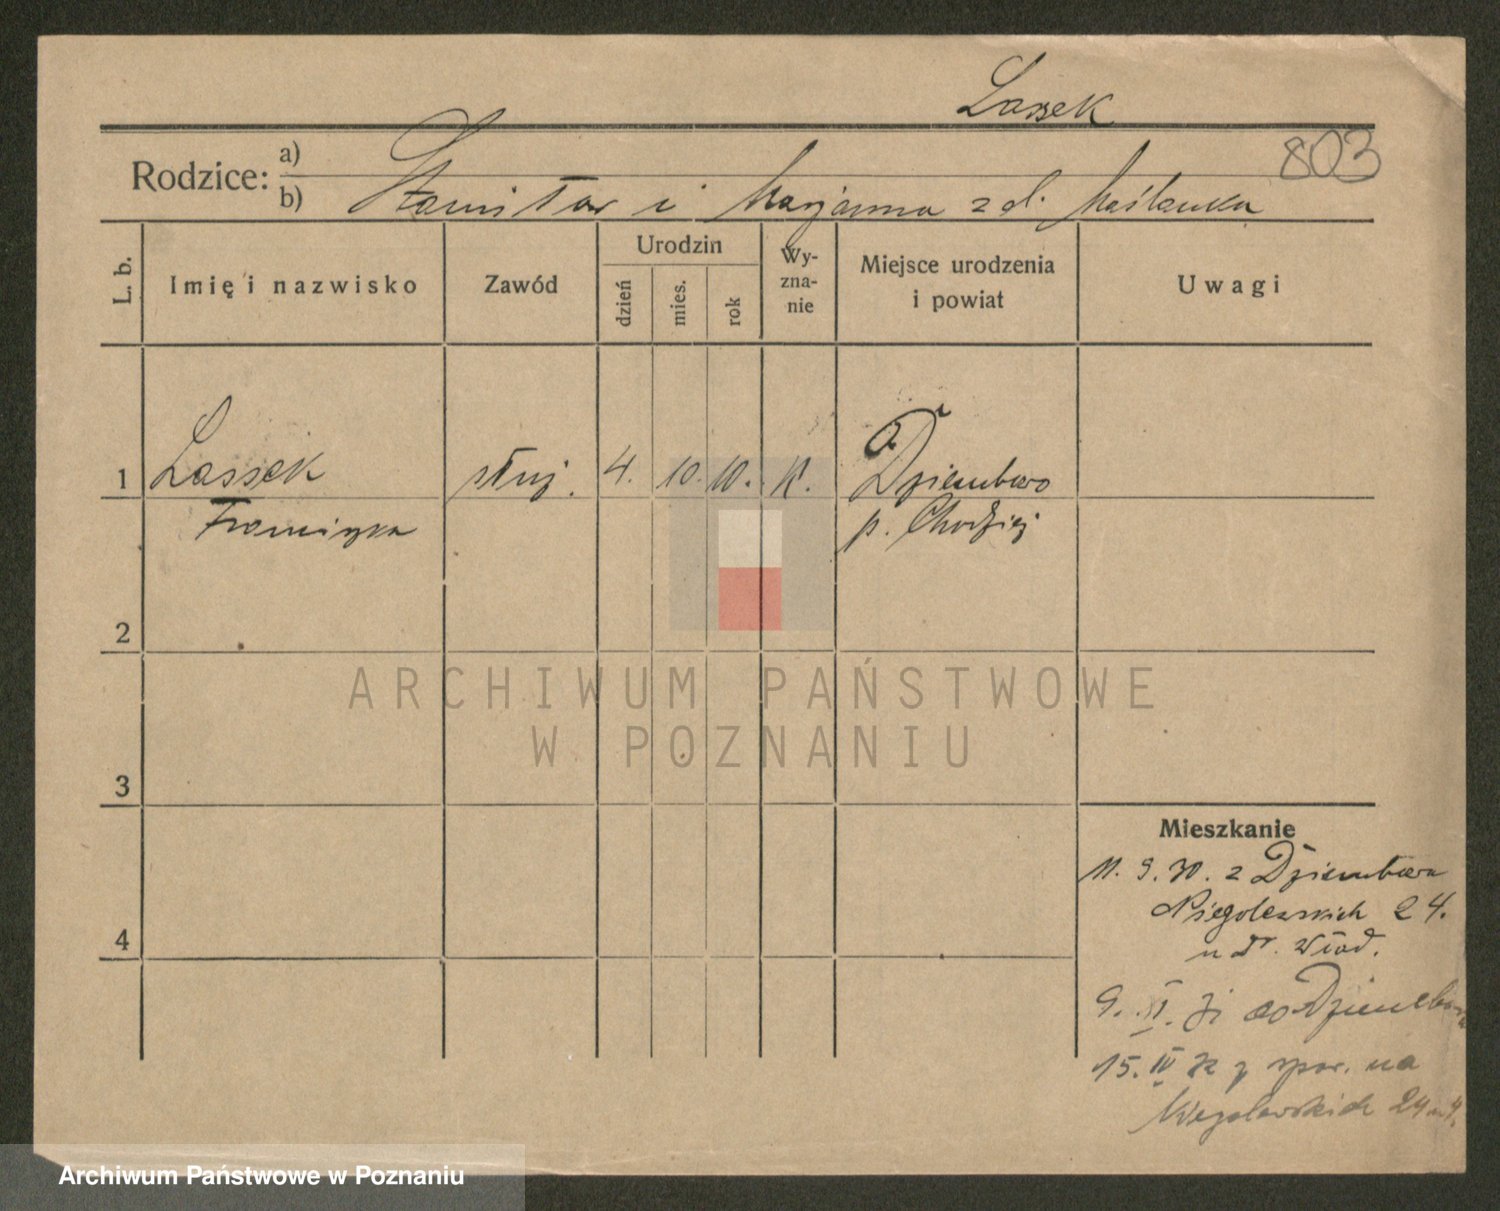 Lassek
803
Rodzice: a)
b) Stanisław i Marjanna z d. Maślanka
L. b.
Imię i nazwisko
Zawód
Urodzin
dzień
mies.
rok
Wy-
zna-
nie
Miejsce urodzenia
i powiat
Uwagi
1 Lassek służ. 4. 10. 10. k. Dziembowo
Franciszka p. Chodzież
2
ARCHIWUM PAŃSTWOWE
W POZNANIU
3
Mieszkanie
11. 9. 30. z Dziembowa
Niegolewskich 24.
4
u Dr. Wład.
9. XI. 31 do Dziembowa
15. IV 32 z spow. na
Niegolewskich 24 m 4.
Archiwum Państwowe w Poznaniu